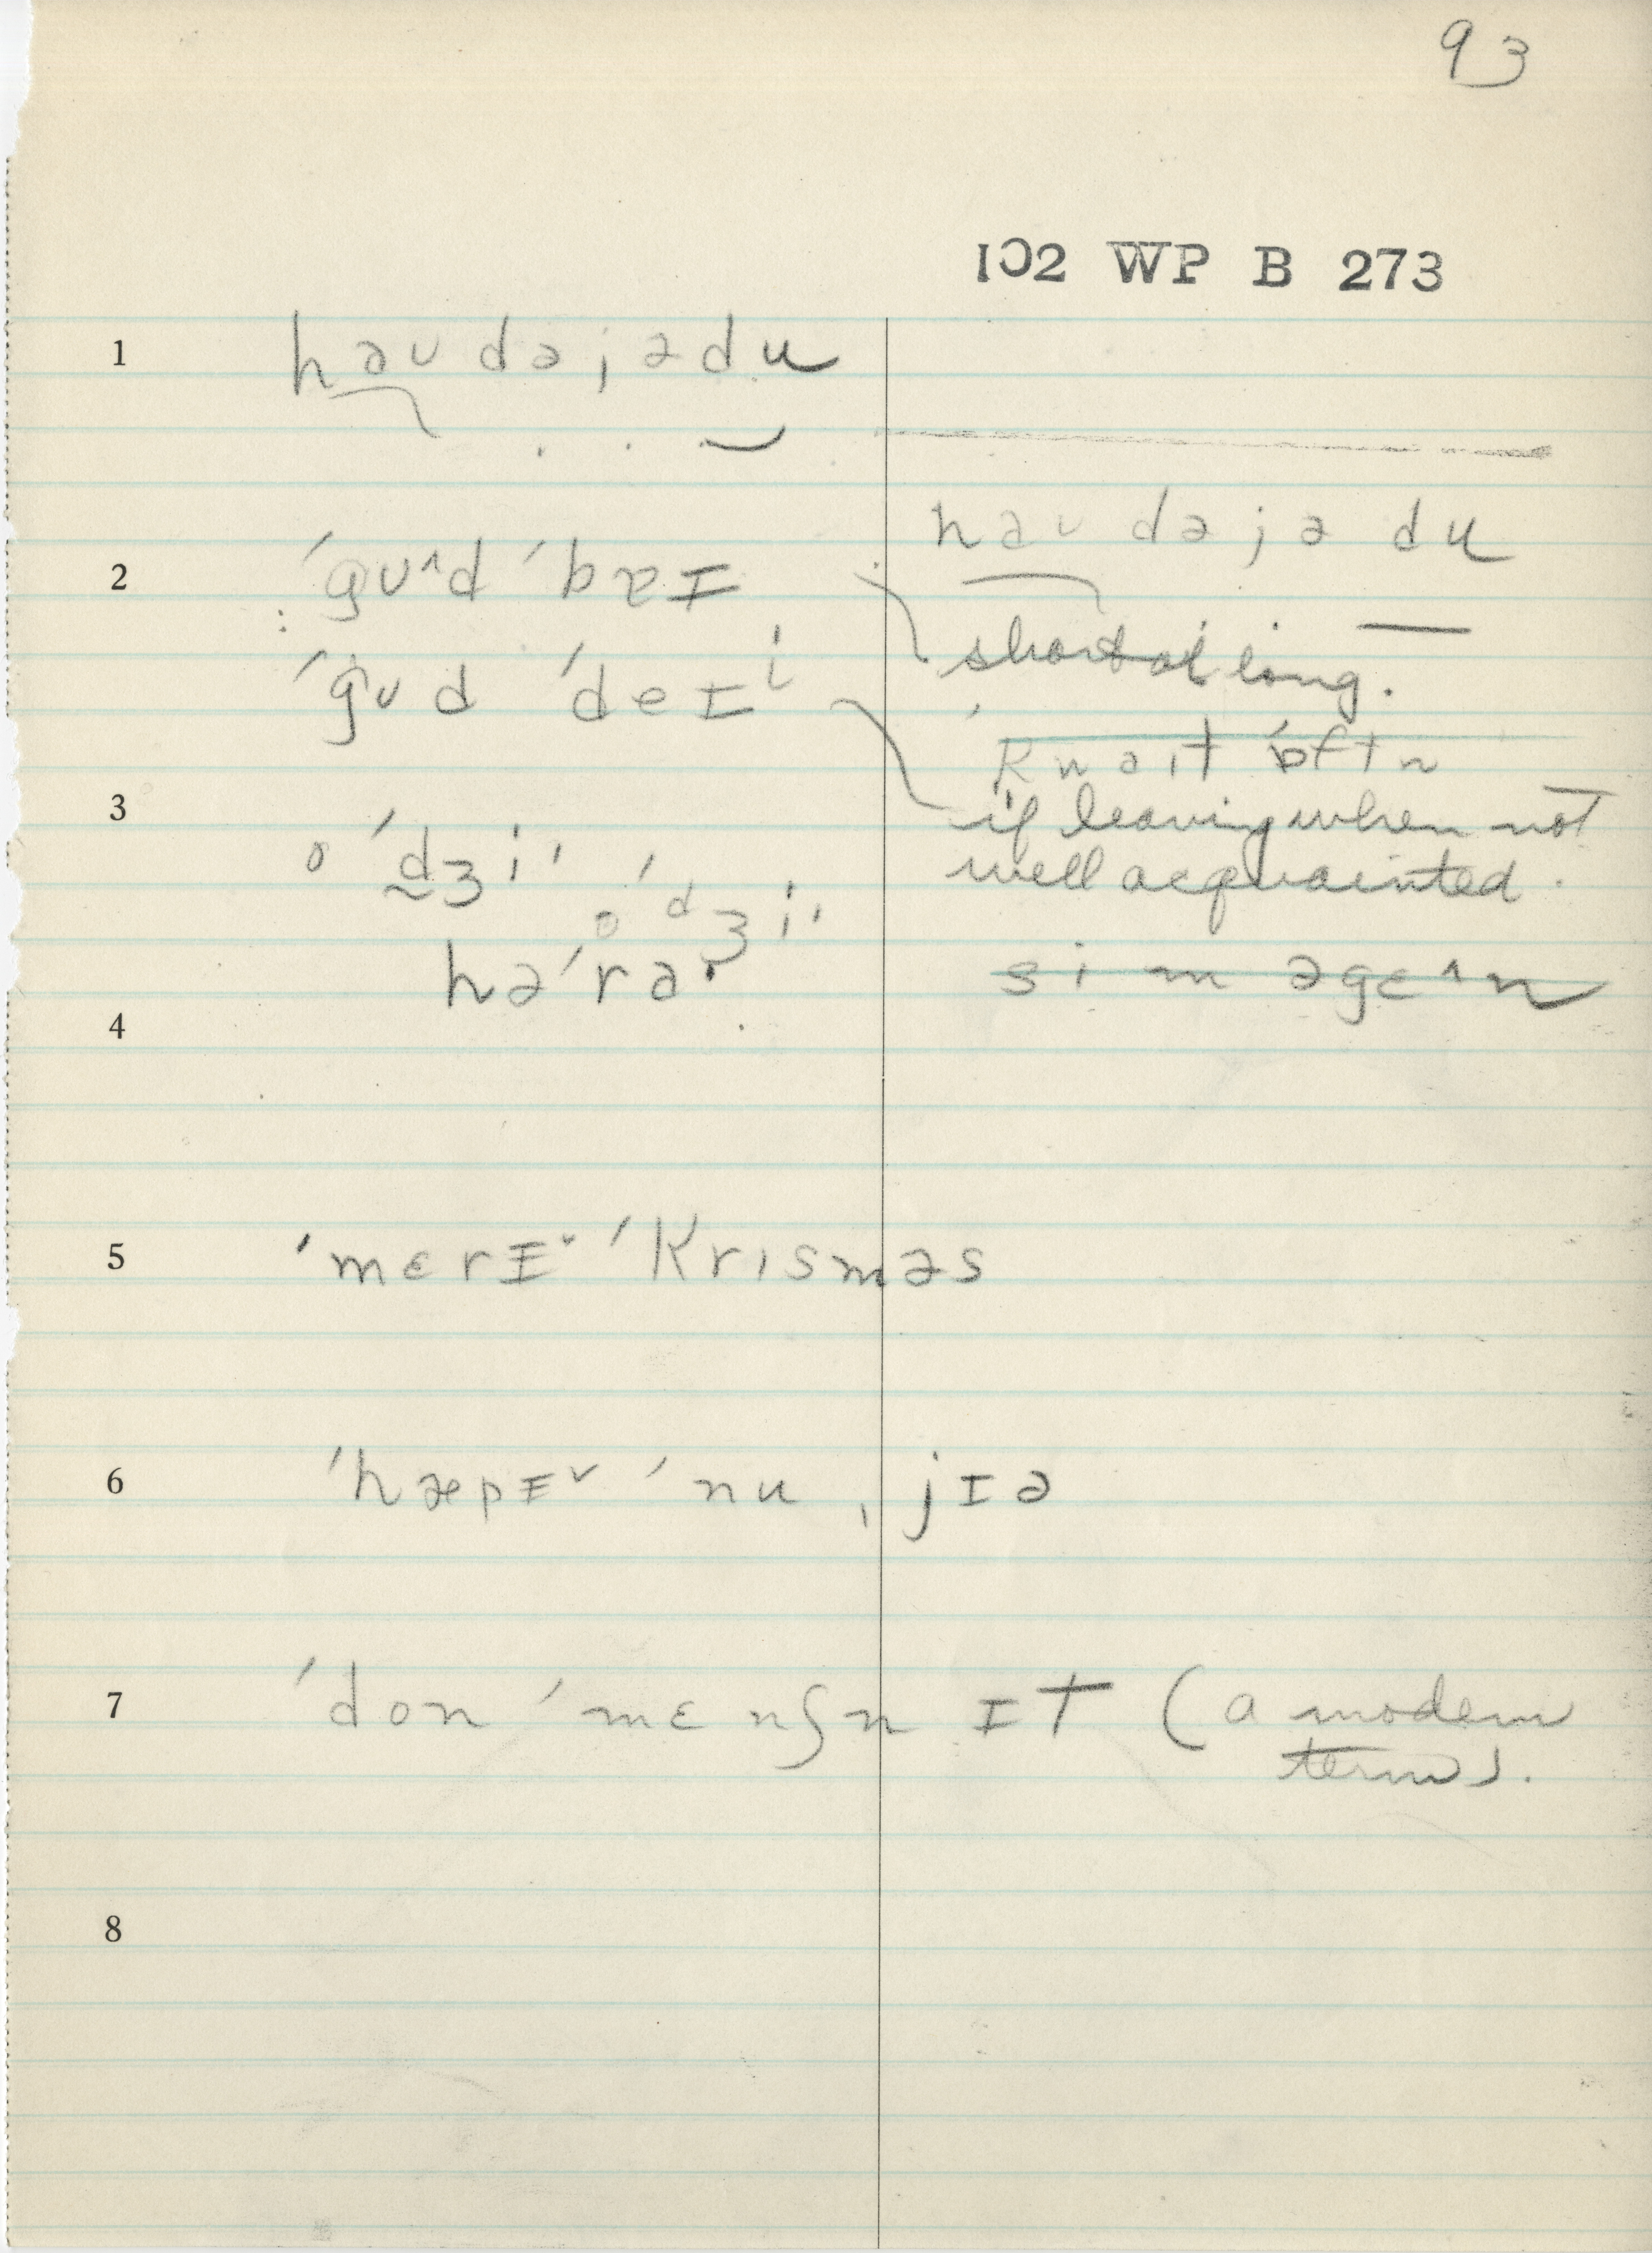 93
102 WP B 273
1 həʊ də jə du
həʊ də jə du
2 ˈgʊ^d ˈbɐɪ
short ol long.
ˈgʊd ˈdeɪⁱ
kwəɪt ˈɒftn
if leaving when not
well acquainted.
3 o ˈdʒiˈ
o ˈdʒiˈ
həˈra·
si m əgɛ^n
4
5 ˈmɛrɪˇ ˈkrɪsməs
6 ˈhæpɪˇ ˈnu ˌjɪə
7 ˈdon ˈmɛnʃn ɪt (a modern
term).
8